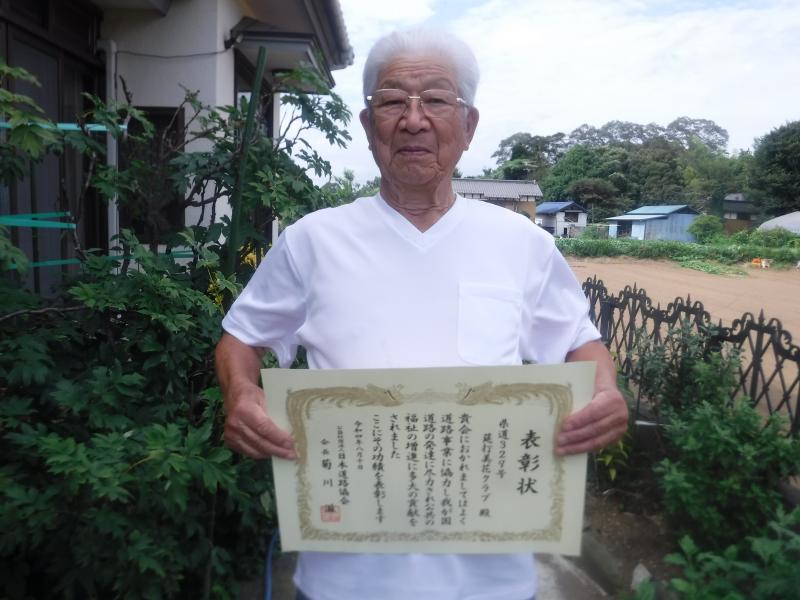 表彰状
県道329号
莚打美花クラブ 殿
貴会におかれましてはよく
道路事業に協力し我が国
道路の発達に尽力され公共の
福祉の増進に多大の貢献を
されました
ここにその功績を表彰します
令和四年八月十日
公益社団法人日本道路協会
会長 菊川 滋